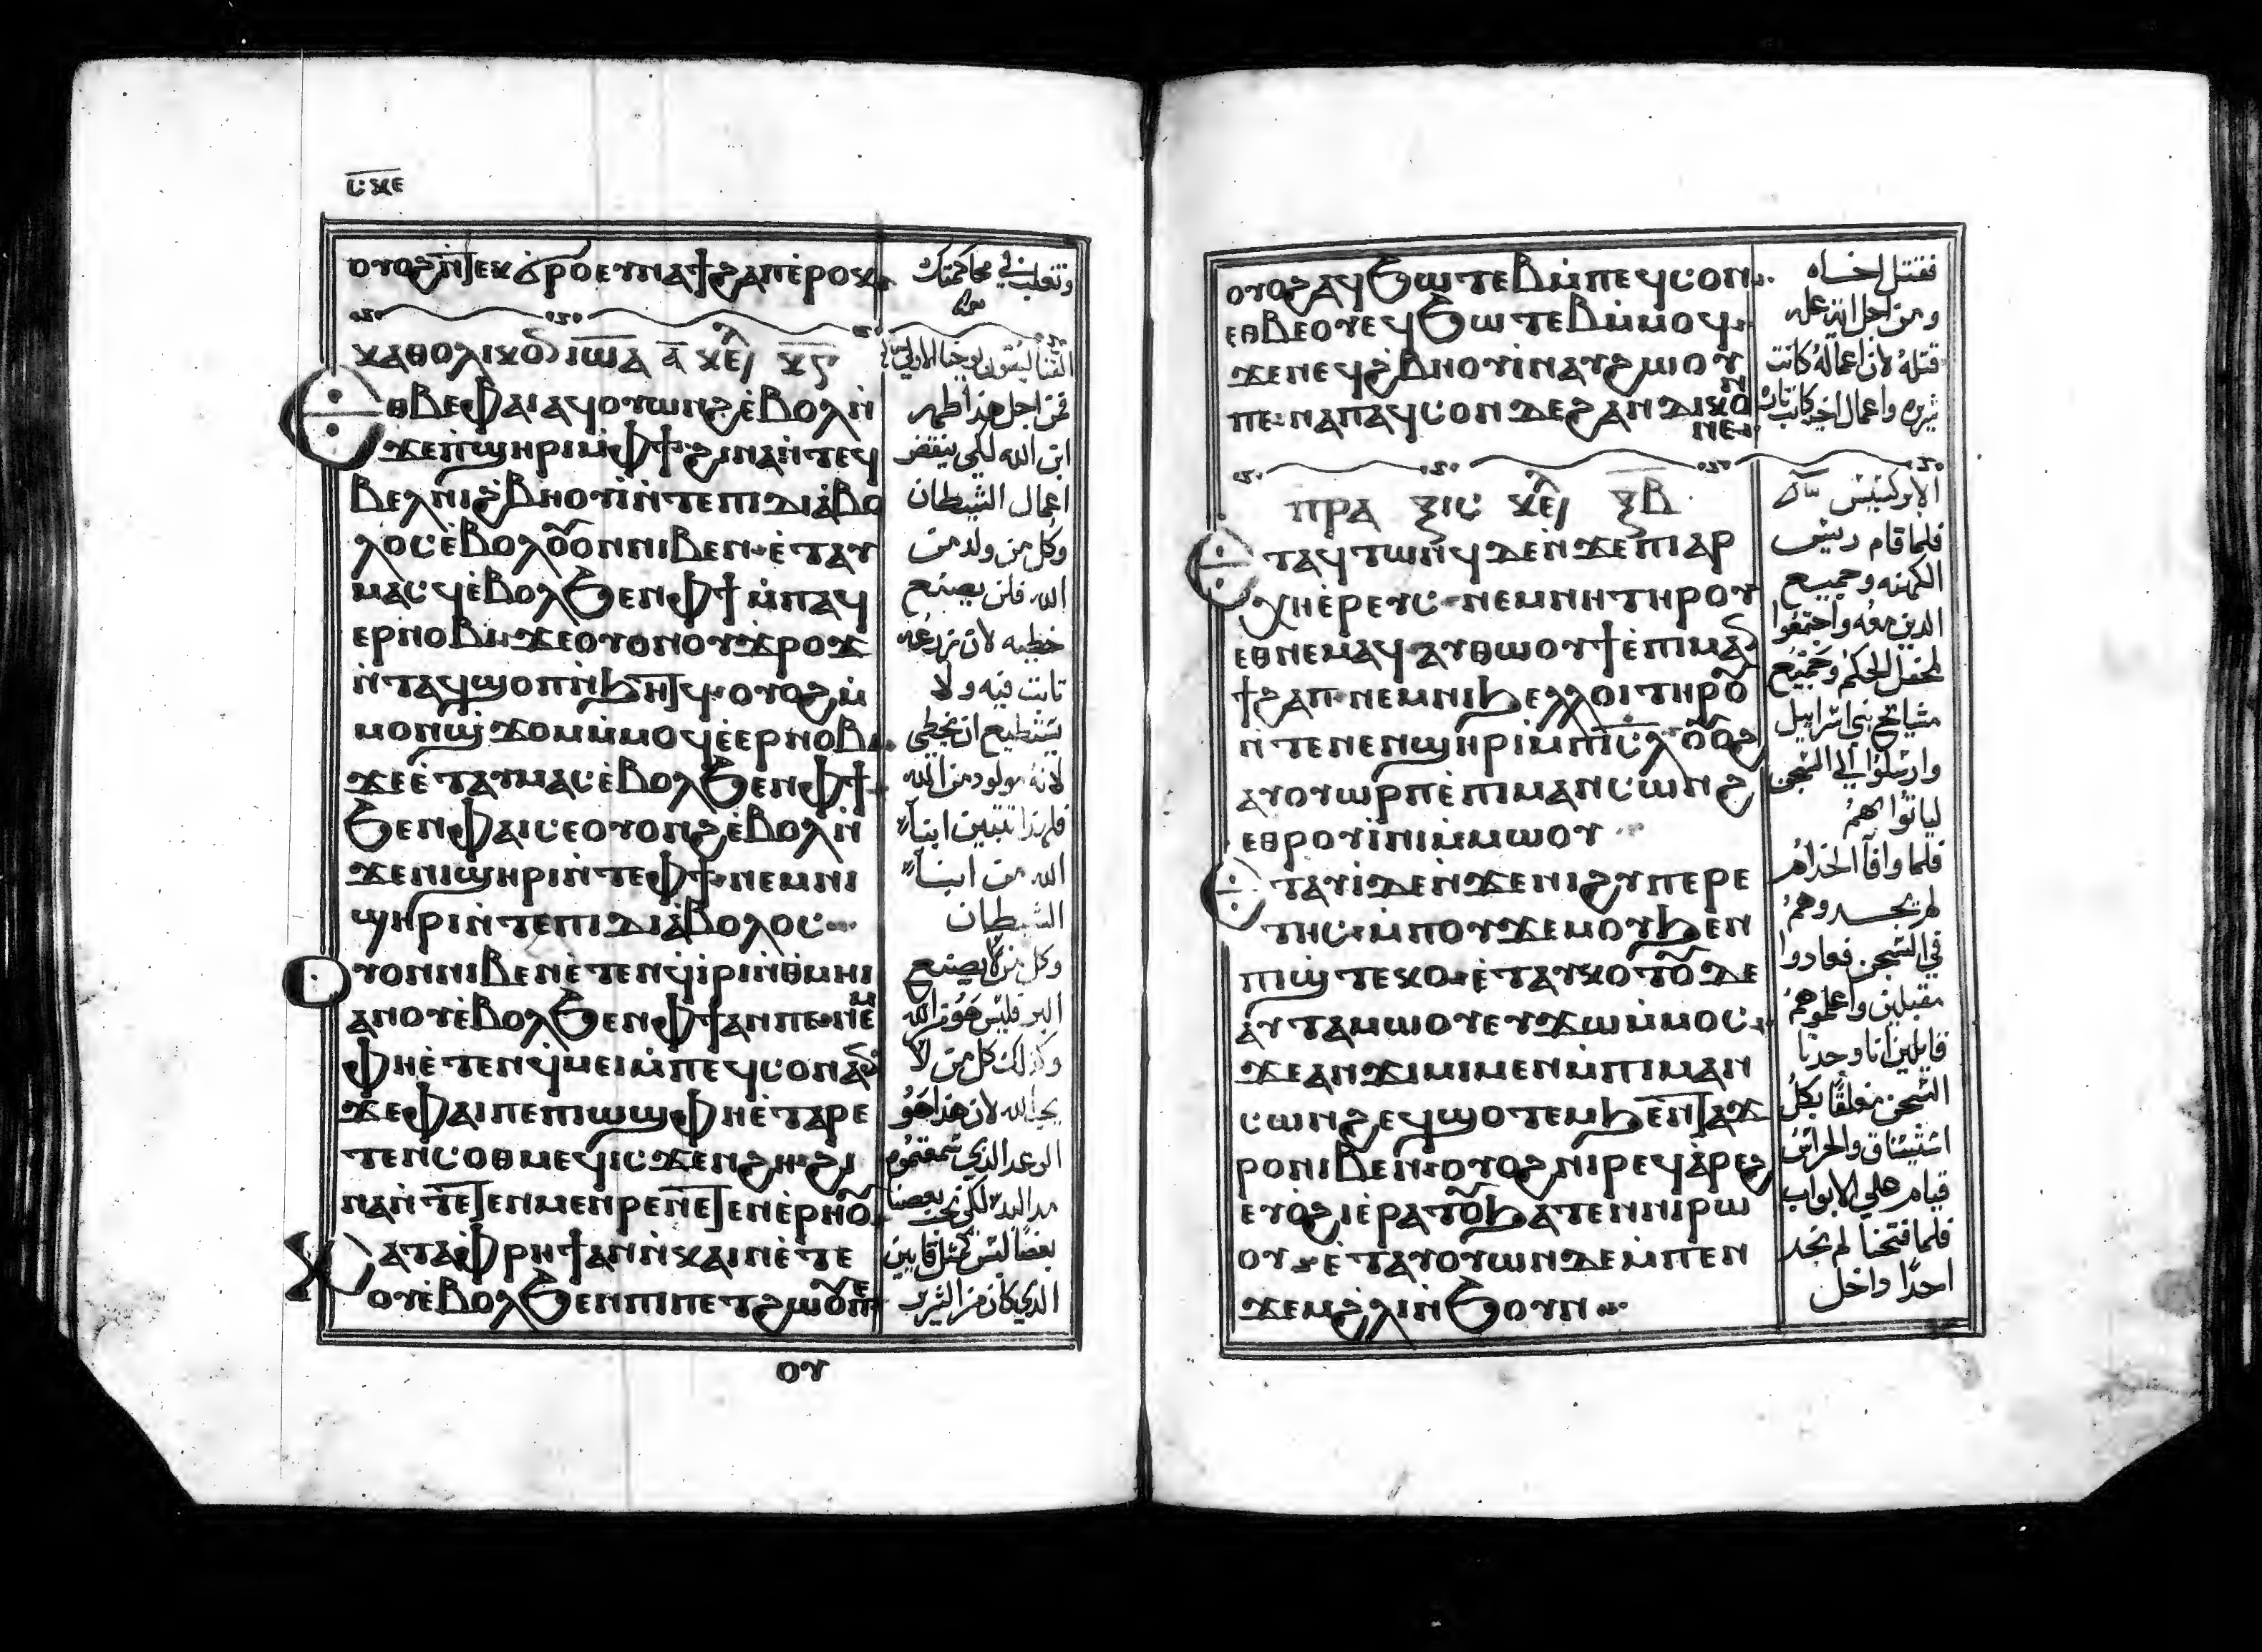 ⲥⲝⲉ
ⲟⲩⲟϩⲛ̀ⲧⲉⲕϭⲣⲟⲉⲩⲛⲁϯϩⲁⲡⲉ̀ⲣⲟⲕ
ⲕⲁⲑⲟⲗⲓⲕⲟ ⲓⲱ̅ⲁ ⲁ̅ ⲕⲉ ⲕ̅ⲋ
ⲉⲑⲃⲉⲫⲁⲓⲁϥⲟⲩⲱⲛϩⲉ̀ⲃⲟⲗⲛ̀
ϫⲉⲡ̀ϣⲏⲣⲓⲙ̀ⲫϯϩⲓⲛⲁⲛ̀ⲧⲉϥ
ⲃⲉⲗⲛⲓϩ̀ⲃⲏⲟⲩⲓ̀ⲛ̀ⲧⲉⲡⲓⲇⲓⲁ̀ⲃⲟ
ⲗⲟⲥⲉ̀ⲃⲟⲗⲟⲟⲛⲛⲓⲃⲉⲛ·ⲉ̀ⲧⲁⲩ
ⲙⲁⲥϥⲉ̀ⲃⲟⲗϧⲉⲛⲫϯⲙ̀ⲡⲁϥ
ⲉⲣⲛⲟⲃⲓ·ϫⲉⲟⲩⲟⲛⲟⲩϫⲣⲟϫ
ⲛ̀ⲧⲁϥϣⲟⲡⲛ̀ϧⲏⲧϥ·ⲟⲩⲟϩⲙ̀
ⲙⲟⲛϣ̀ϫⲟⲙⲙ̀ⲙⲟϥⲉ̀ⲉⲣⲛⲟⲃⲓ·
ϫⲉⲉ̀ⲧⲁⲩⲙⲁⲥⲉ̀ⲃⲟⲗϧⲉⲛⲫϯ·
ϧⲉⲛⲫⲁⲓⲥⲉⲟⲩⲟⲛϩⲉ̀ⲃⲟⲗⲛ̀
ϫⲉⲛⲓϣⲏⲣⲓⲛ̀ⲧⲉⲫϯ·ⲛⲉⲙⲛⲓ
ϣⲏⲣⲓⲛ̀ⲧⲉⲡⲓⲇⲓⲁ̀ⲃⲟⲗⲟⲥ
ⲟⲩⲟⲛⲛⲓⲃⲉⲛⲉ̀ⲧⲉⲛϥ̀ⲓ̀ⲣⲓⲛ̀ⲑⲙⲏⲓ
ⲁⲛⲟⲩⲉ̀ⲃⲟⲗϧⲉⲛⲫϯⲁⲛⲡⲉ·ⲛⲉⲙ
ⲫⲏⲉ̀ⲧⲉⲛϥ̀ⲙⲉⲓⲙ̀ⲡⲉϥⲥⲟⲛⲁⲛ
ϫⲉⲫⲁⲓⲡⲉⲡⲓⲱϣⲫⲏⲉ̀ⲧⲁⲣⲉ
ⲧⲉⲛⲥⲟⲑⲙⲉϥⲓⲥϫⲉⲛϩⲏ·ϩⲓ
ⲛⲁⲛ̀ⲧⲉⲧⲉⲛⲙⲉⲛⲣⲉⲛⲉⲧⲉⲛⲉ̀ⲣⲏⲟⲩ
ⲕⲁⲧⲁⲫ̀ⲣⲏϯⲁⲛⲛ̀ⲕⲁⲓⲛⲉ̀ⲧⲉ
ⲟⲩⲉ̀ⲃⲟⲗϧⲉⲛⲡⲓⲡⲉⲧϩⲱⲟⲩⲡⲉ
ⲟⲩ
وتغلب في محاكمتك
فمن اجل هذا ظهر
ابن الله لكي ينقض
اعمال الشيطان
وكل من ولد من
الله فلن يصنع
خطيه لان زرعه
ثابت فيه ولا
يستطيع ان يخطي
لانه مولود من الله
فلهذا تتبين ابنا
الله من ابنا
الشيطان
وكل من لا يصنع
البر فليس هو من الله
وكذلك كل من لا
يحب الله لان هذا هو
الوعد الذي سمعتموه
من البدء لكي نحب بعضنا
بعضا ليس كمثل قايين
الذي كان من الشرير
ⲟⲩⲟϩⲁϥϧⲱⲧⲉⲃⲙ̀ⲡⲉϥⲥⲟⲛ
ⲉⲑⲃⲉⲟⲩⲉϥϧⲱⲧⲉⲃⲙ̀ⲙⲟϥ·
ϫⲉⲛⲉϥϩ̀ⲃⲏⲟⲩⲓ̀ⲛⲁⲩϩⲱⲟⲩ
ⲡⲉ·ⲛⲁⲡⲁϥⲥⲟⲛⲇⲉϩⲁⲛⲇⲓⲕⲟⲛ
ⲛⲉ
ⲡⲣⲁ ⲝⲓⲥ ⲕⲉ ⲝ̅ⲃ
ⲉⲧⲁϥⲧⲱⲛϥⲇⲉⲛ̀ϫⲉⲡⲓⲁⲣ
ⲭⲏⲉ̀ⲣⲉⲩⲥ·ⲛⲉⲙⲛⲏⲧⲏⲣⲟⲩ
ⲉⲑⲛⲉⲙⲁϥ·ⲁⲩⲑⲱⲟⲩϯⲉ̀ⲡⲓⲙⲁ
ϯϩⲁⲡ·ⲛⲉⲙⲛⲓϧⲉⲗⲗⲟⲓⲧⲏⲣⲟⲩ
ⲛ̀ⲧⲉⲛⲉⲛϣⲏⲣⲓⲙ̀ⲡⲓⲥⲗⲟⲟϩ
ⲁⲩⲟⲩⲱⲣⲡⲉ̀ⲡⲓⲙⲁⲛⲥⲱⲛϩ
ⲉⲑⲣⲟⲩⲓ̀ⲛⲓⲙ̀ⲙⲱⲟⲩ
ⲉⲧⲁⲩⲓ̀ⲇⲉⲛ̀ϫⲉⲛⲓϩⲩⲡⲉⲣⲉ
ⲧⲏⲥ·ⲙ̀ⲡⲟⲩϫⲉⲙⲟⲩϧⲉⲛ
ⲡⲓϣ̀ⲧⲉⲕⲟ·ⲉ̀ⲧⲁⲩⲕⲟⲧⲟⲩⲇⲉ
ⲁⲩⲧⲁⲙⲱⲟⲩⲉⲩϫⲱⲙ̀ⲙⲟⲥ·
ϫⲉⲁⲛϫⲓⲙⲓⲙⲉⲛⲙ̀ⲡⲓⲙⲁⲛ
ⲥⲱⲛϩⲉϥϣⲟⲧⲉⲙϧⲉⲛⲧⲁϫ
ⲣⲟⲛⲓⲃⲉⲛ·ⲟⲩⲟϩⲛⲓⲣⲉϥⲁ̀ⲣⲉϩ
ⲉⲩⲟ̀ϩⲓⲉ̀ⲣⲁⲧⲟⲩϧⲁⲧⲉⲛⲛⲓⲣⲱ
ⲟⲩ·ⲉ̀ⲧⲁⲩⲟⲩⲱⲛⲇⲉⲙ̀ⲡⲉⲛ
ϫⲉⲙϩ̀ⲗⲓⲛ̀ϧⲟⲩⲛ
فقتل اخاه
ومن اجل اية عله
قتله لان اعماله كانت
شريره واعمال اخيه كانت بارة
الابركسيس
فلما قام رييس
الكهنه وجميع
الذين معه واجتمعوا
لمحفل الحكم وجميع
مشايخ بني اسراييل
وارسلوا الي السجن
لياتوا بهم
فلما وافا الخدام
لم يجدوهم
في السجن فعادوا
مقبلين واعلموهم
قايلين انا وجدنا
السجن مغلقا بكل
استيثاق والحراس
قيام علي الابواب
فلما فتحنا لم نجد
احدا داخل